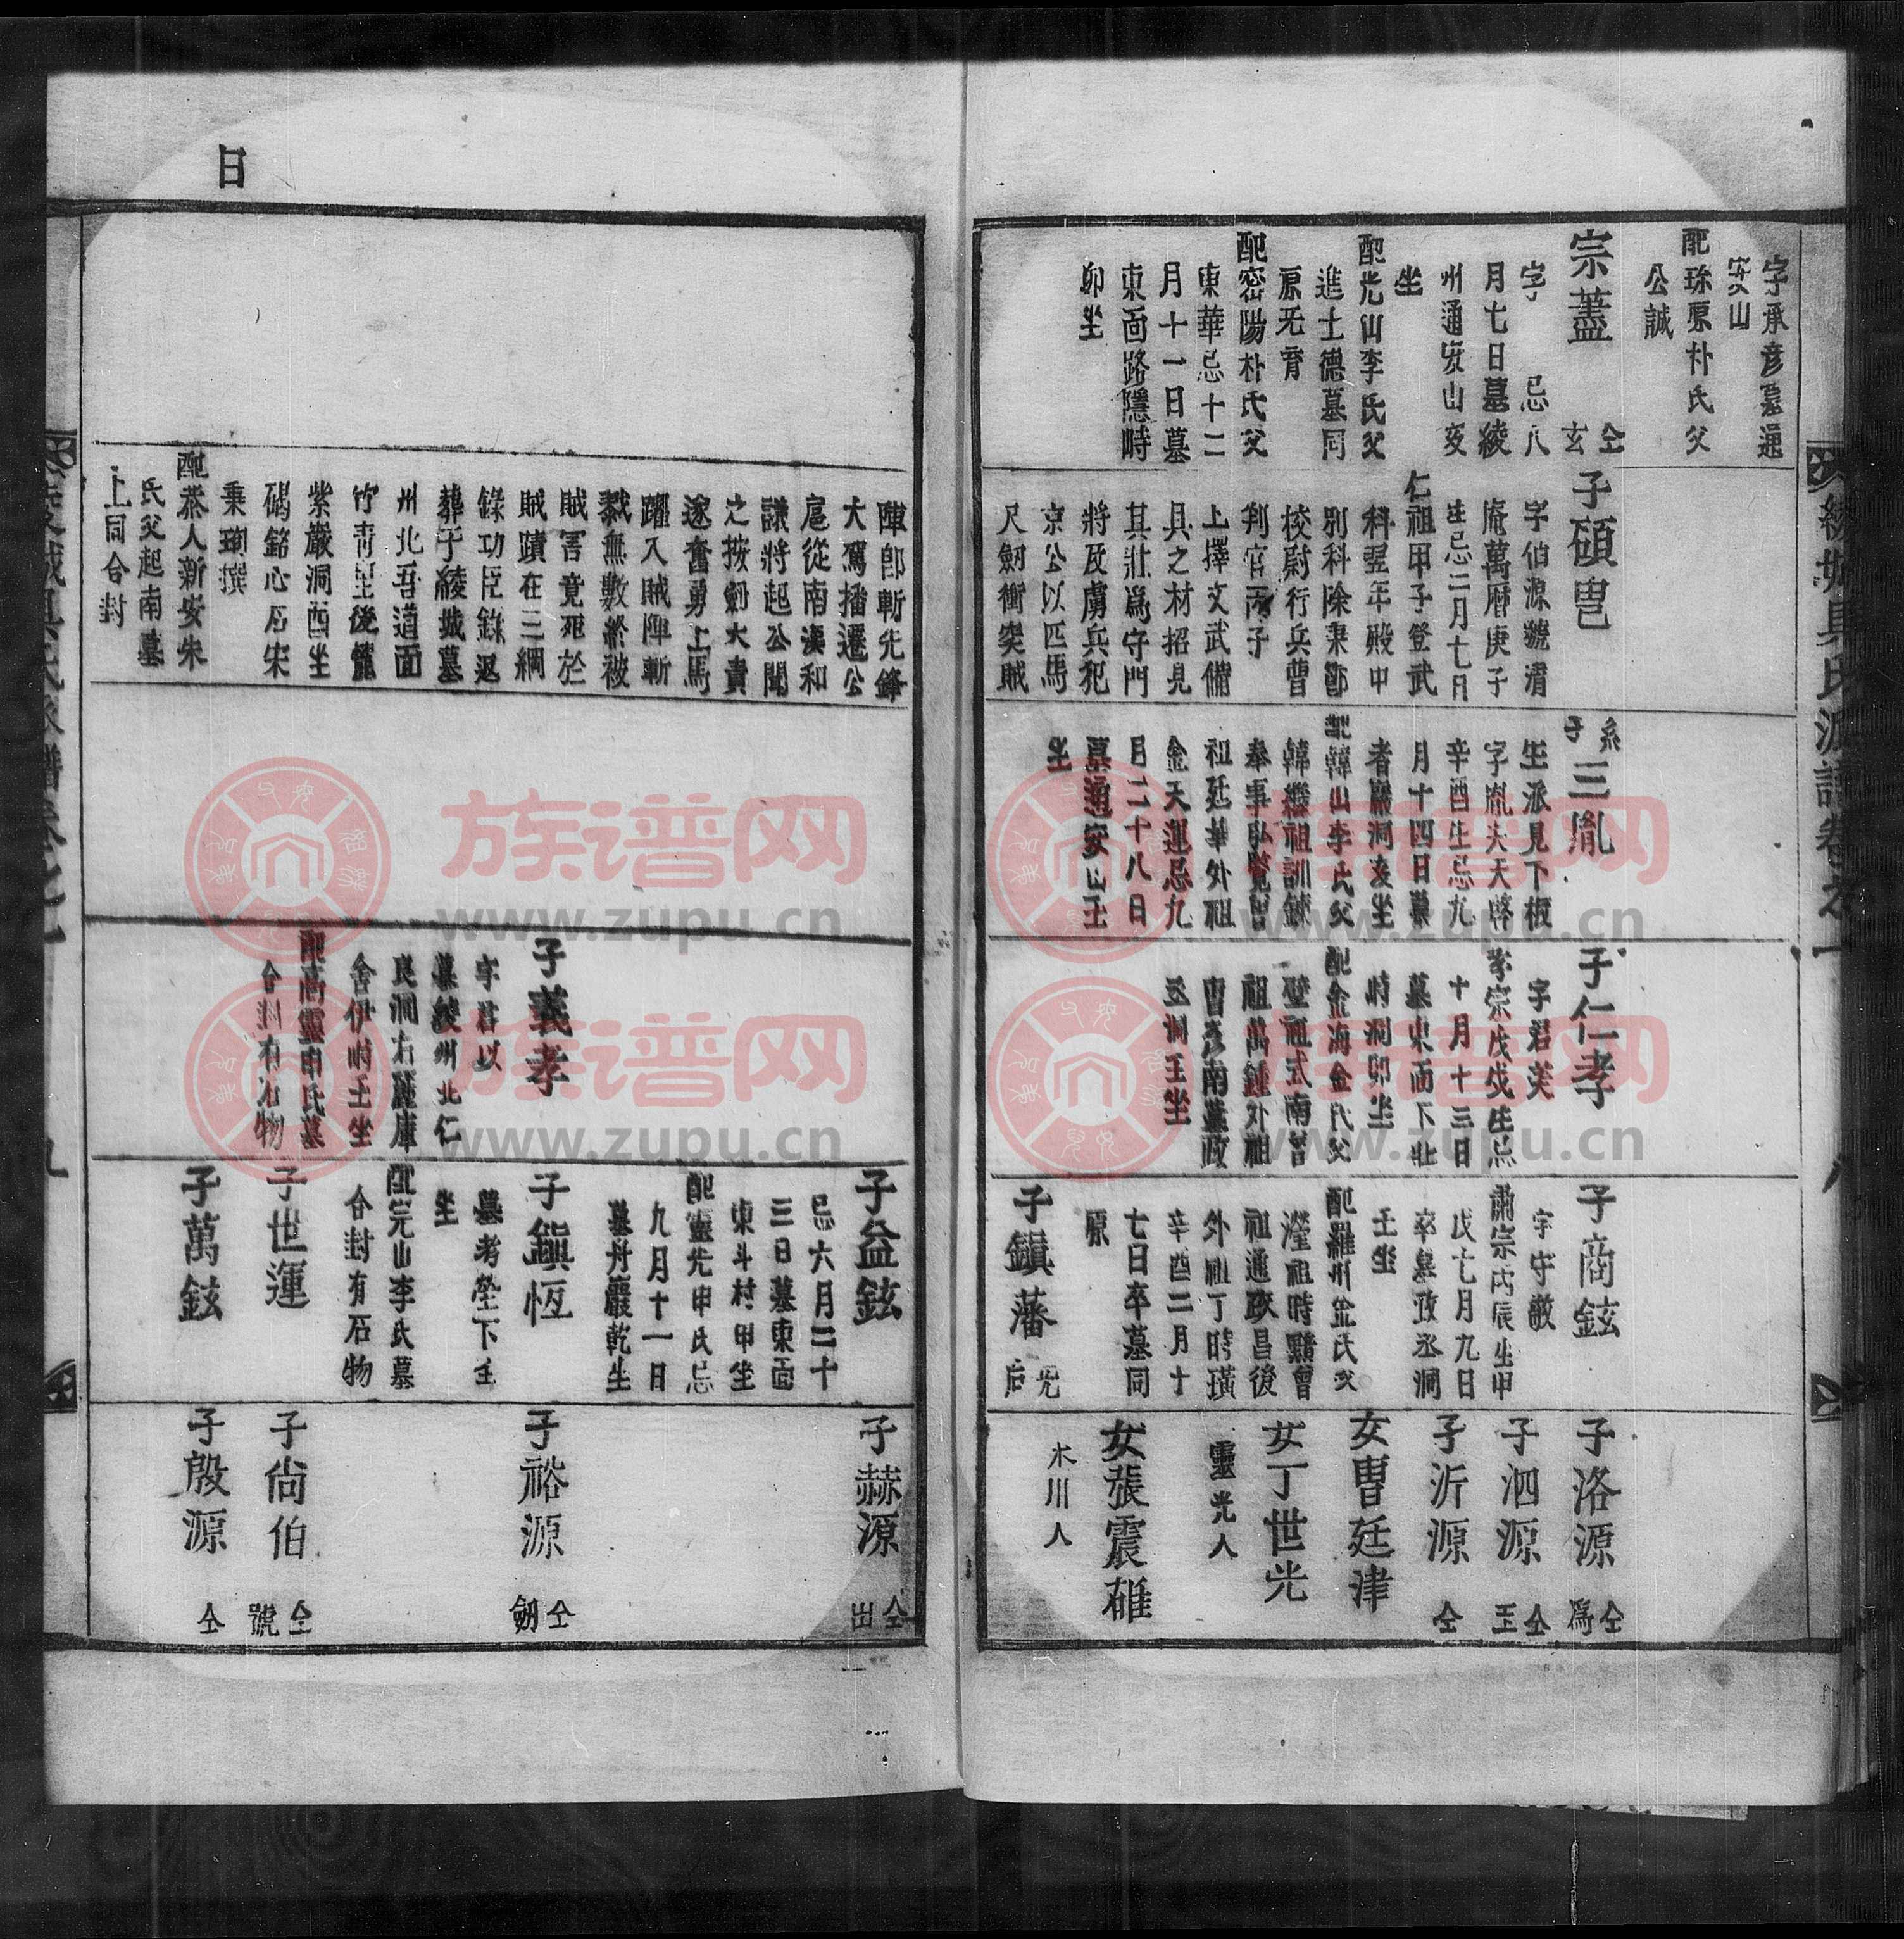 綾城具氏派譜卷之一
八
字承彦墓通
安山
配珍原朴氏父
公誠
宗蓋
仝
玄
字 忌八
月七日墓綾
州通安山亥
坐
配光山李氏父
進士德墓同
原无育
配密陽朴氏父
東華忌十二
月十一日墓
東面路隱峙
卯坐
子碩
字伯源號清
庵萬曆庚子
生忌二月七日
仁祖甲子登武
科翌年殿中
別科除秉節
校尉行兵曹
判官丙子
上擇文武備
具之材招見
其壯爲守門
將及虜兵犯
京公以匹馬
尺劒衝突賊
系
子
三胤
生派見下板
字胤夫天啓
辛酉生忌九
月十四日墓
者巖洞亥坐
配韓山李氏父
韓繼祖訓鍊
奉事弘覽曾
祖廷華外祖
金天運忌九
月二十八日
墓通安山壬
坐
子仁孝
字君芙
孝宗戊戌生忌
十月十三日
墓東面下北
峙洞卯坐
配金海金氏父
璧祖式南曾
祖萬鍾外祖
曺彦南墓政
丞洞壬坐
子商鉉
字守敬
肅宗丙辰生甲
戊七月九日
卒墓政丞洞
壬坐
配羅州金氏父
瀅祖時黯曾
祖通政昌後
外祖丁時璜
辛酉二月十
七日卒墓同
原
子鎭藩
兄
后
子洛源
仝
爲
子泗源
仝
王
子沂源
仝
女曺廷津
女丁世光
靈光人
女張震雄
木川人
日
陣卽斬先鋒
大駕播遷公
扈從南漢和
議將起公聞
之按劒大責
遂奮勇上馬
躍入賊陣斬
戮無數終被
賊害竟死於
賊蹟在三綱
錄功臣錄返
葬于綾城墓
州北吾道面
竹靑里後籠
紫巖洞酉坐
碣銘心石宋
秉珣撰
配恭人新安朱
氏父起南墓
上同合封
子義孝
字君以
墓綾州北仁
良洞右麓庫
舍伊峙壬坐
配高靈申氏墓
合封有石物
子益鉉
忌六月二十
三日墓東面
東斗村甲坐
配靈光申氏忌
九月十一日
墓丹巖乾坐
子鎭恆
墓考塋下壬
坐
配完山李氏墓
合封有石物
子世運
子萬鉉
子赫源
仝
出
子裕源
仝
劒
子尙伯
仝
號
子殷源
仝
九
族谱网
www.zupu.cn
族谱网
www.zupu.cn
族谱网
www.zupu.cn
族谱网
www.zupu.cn